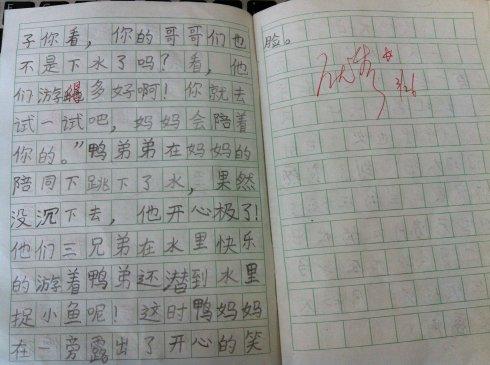 子你看，你的哥哥们也
不是下水了吗？看，他
们游得多好啊！你就去
试一试吧，妈妈会陪着
你的。”鸭弟弟在妈妈的
陪同下跳下了水，果然
没沉下去，他开心极了！
他们三兄弟在水里快乐
的游着鸭弟还潜到水里
捉小鱼呢！这时鸭妈妈
在一旁露出了开心的笑
脸。
优